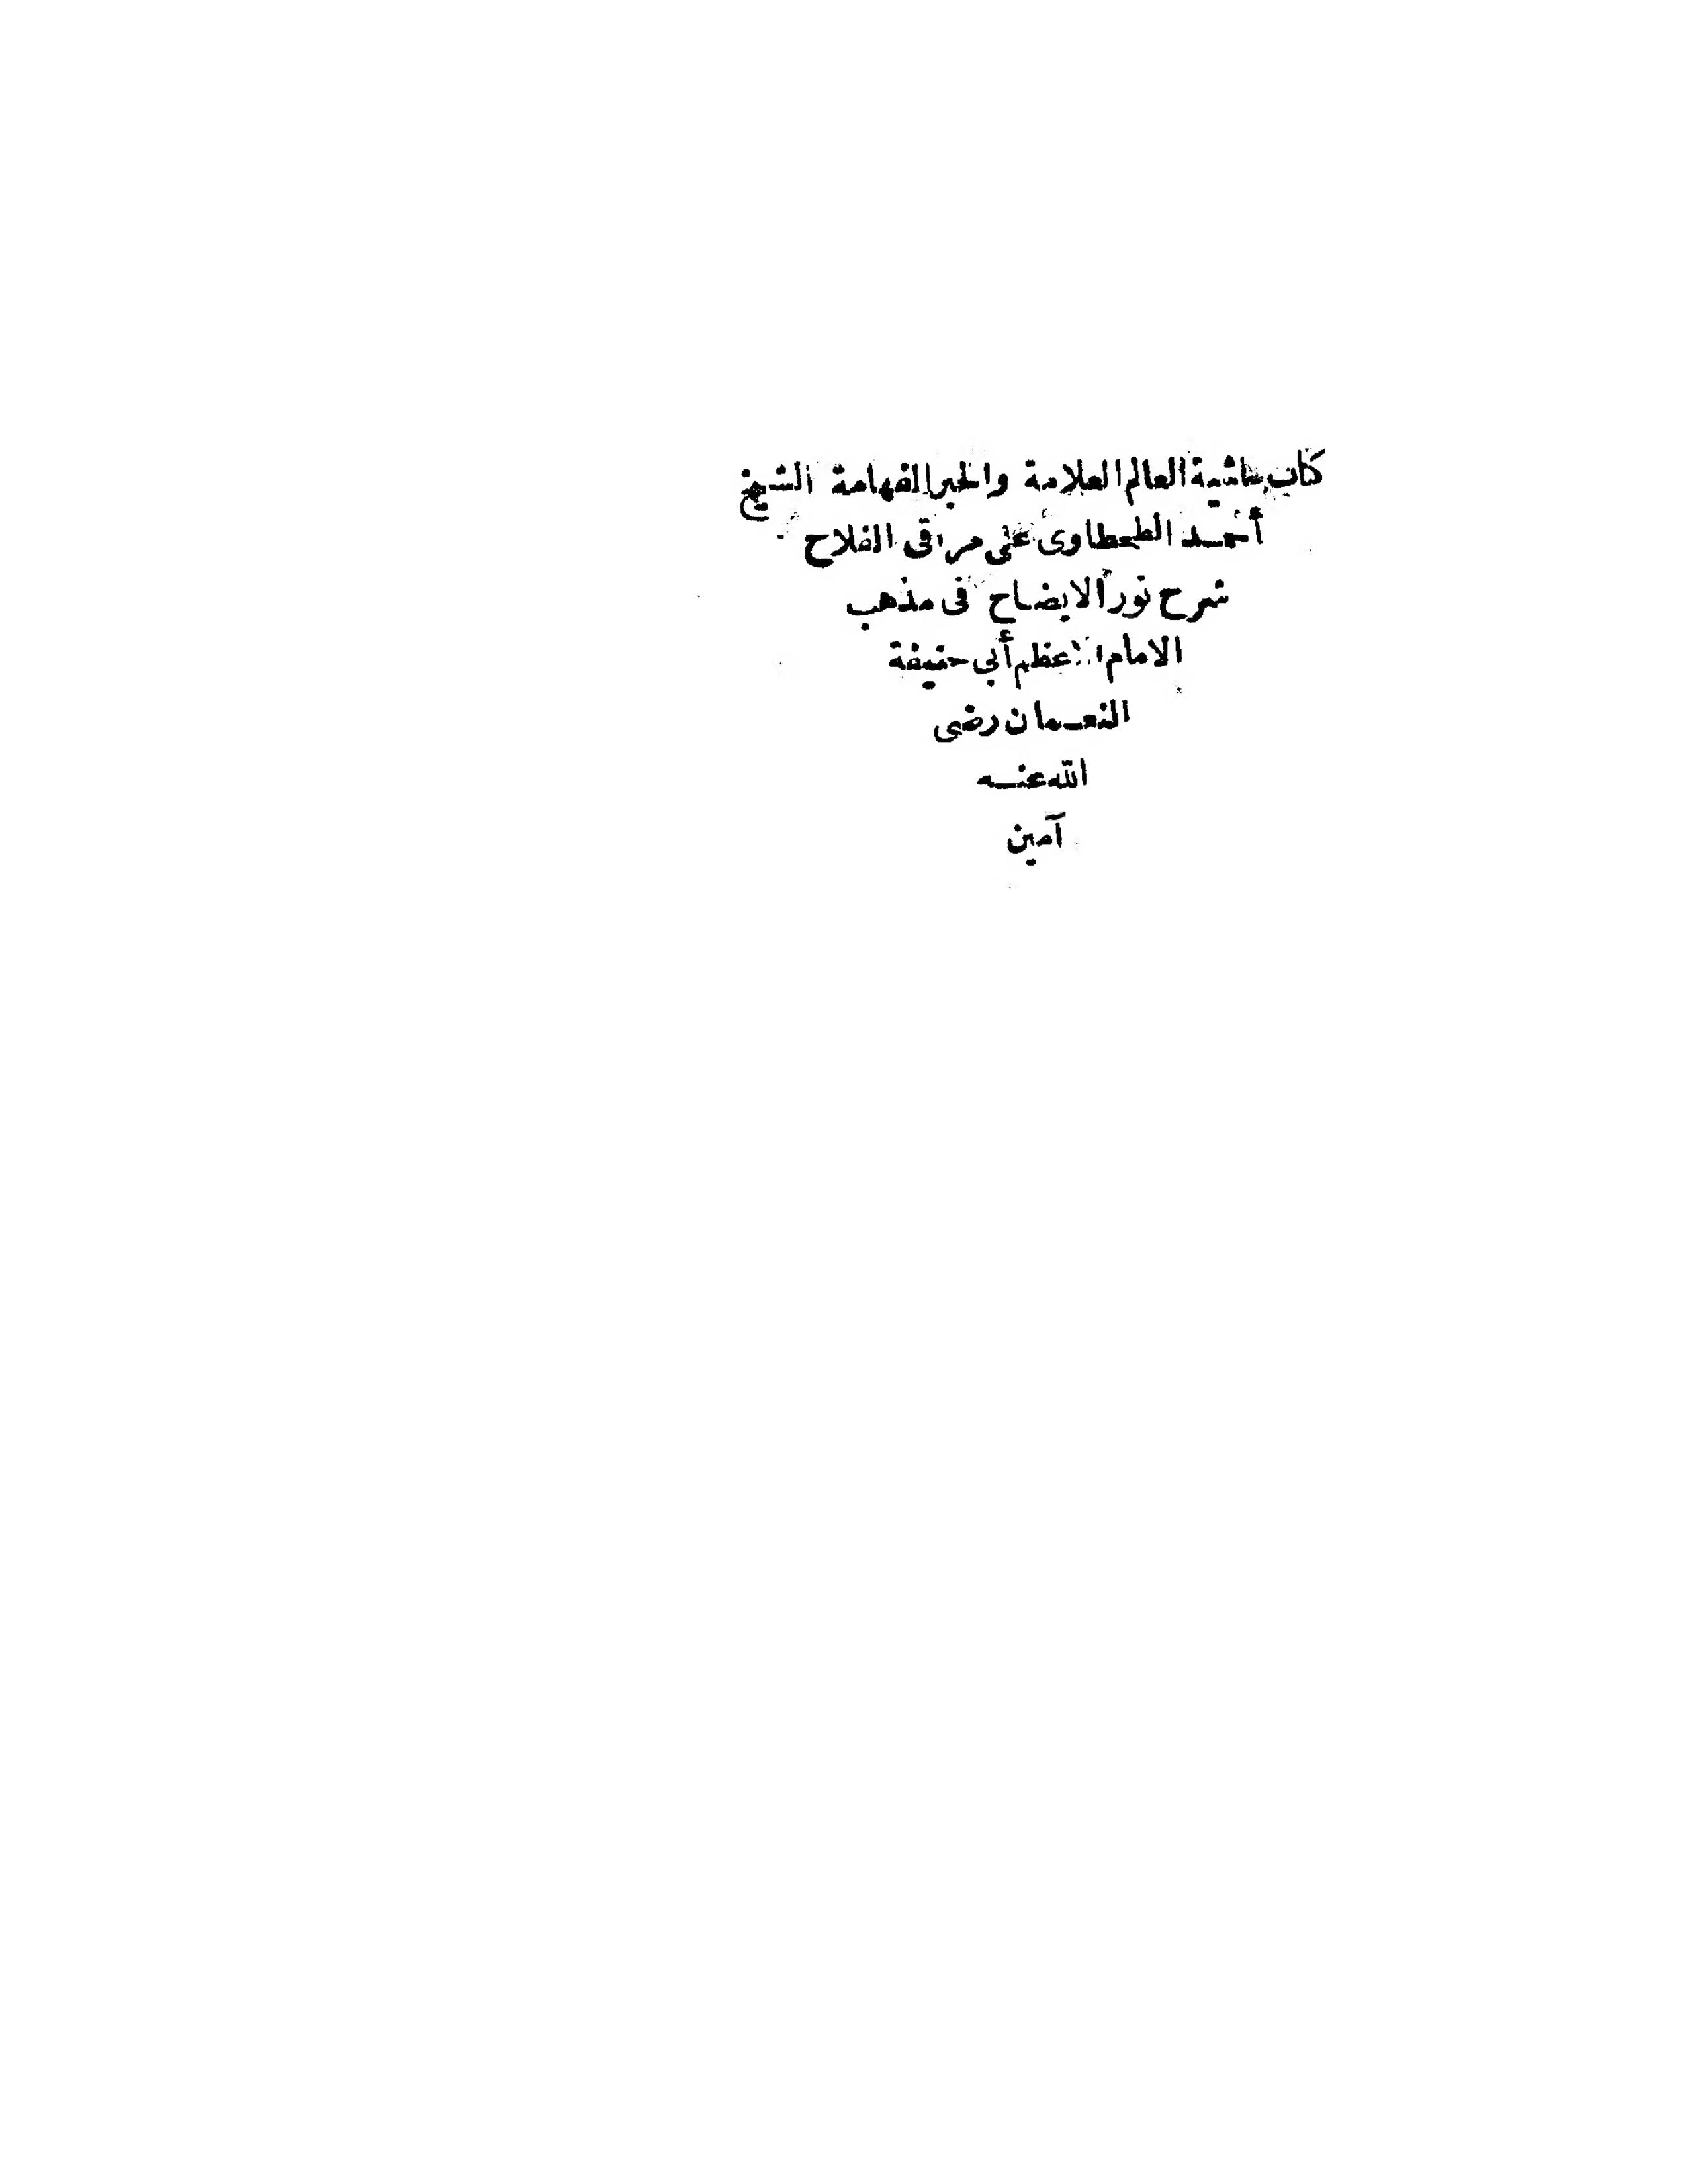 كتاب حاشية العالم العلامة والحبر الفهامة الشيخ
أحمد الطحطاوى على مراقى الفلاح
شرح نور الايضاح فى مذهب
الامام الاعظم أبى حنيفة
النعمان رضى
الله عنه
آمين